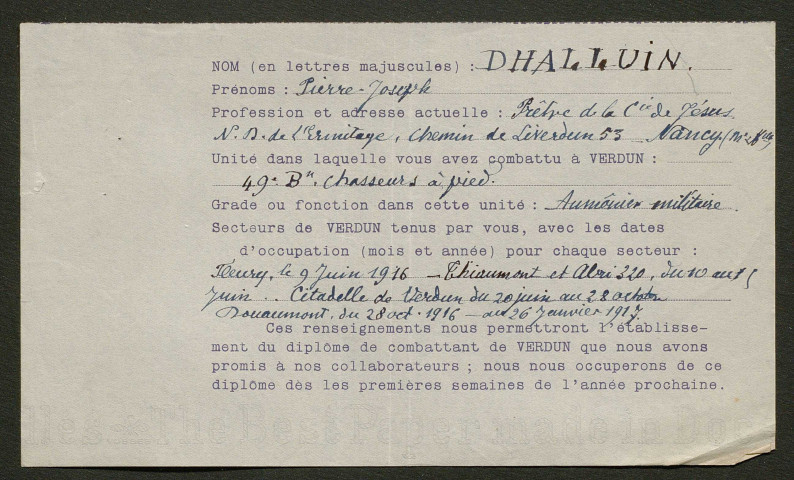 NOM (en lettres majuscules) : DHALLUIN.
Prénoms : Pierre-Joseph
Profession et adresse actuelle : Prêtre de la Cie de Jésus.
N. D. de l'Ermitage, Chemin de Liverdun 53 Nancy (
Unité dans laquelle vous avez combattu à VERDUN :
49e Bn. Chasseurs à pied.
Grade ou fonction dans cette unité : Aumônier militaire.
Secteurs de VERDUN tenus par vous, avec les dates
d'occupation (mois et année) pour chaque secteur :
Fleury, le 9 Juin 1916 — Thiaumont et Abri 320, du 10 au 15
Juin .. Citadelle de Verdun du 20 juin au 28 octobre
Douaumont, du 28 oct. 1916 — au 26 Janvier 1917.
Ces renseignements nous permettront l'établisse-
ment du diplôme de combattant de VERDUN que nous avons
promis à nos collaborateurs ; nous nous occuperons de ce
diplôme dès les premières semaines de l'année prochaine.